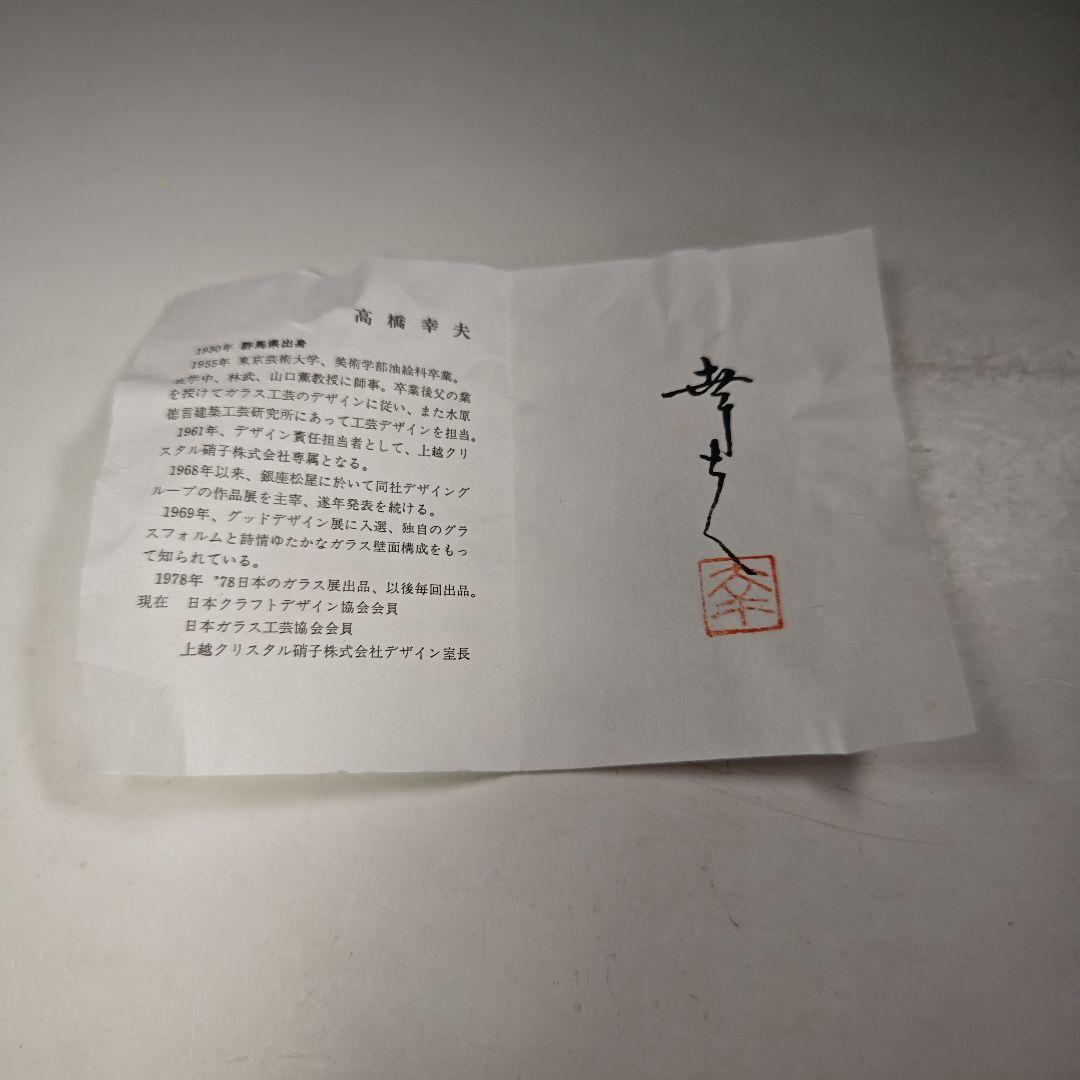 高橋幸夫
1930年 群馬県出身
1955年 東京芸術大学、美術学部油絵科卒業。
在学中、林武、山口薫教授に師事。卒業後父の業
を授けてガラス工芸のデザインに従い、また水原
徳言建築工芸研究所にあって工芸デザインを担当。
1961年、デザイン責任担当者として、上越クリ
スタル硝子株式会社専属となる。
1968年以来、銀座松屋に於いて同社デザイング
ループの作品展を主宰、遂年発表を続ける。
1969年、グッドデザイン展に入選、独自のグラ
スフォルムと詩情ゆたかなガラス壁面構成をもっ
て知られている。
1978年 "78日本のガラス展出品、以後毎回出品。
現在 日本クラフトデザイン協会会員
日本ガラス工芸協会会員
上越クリスタル硝子株式会社デザイン室長
幸夫